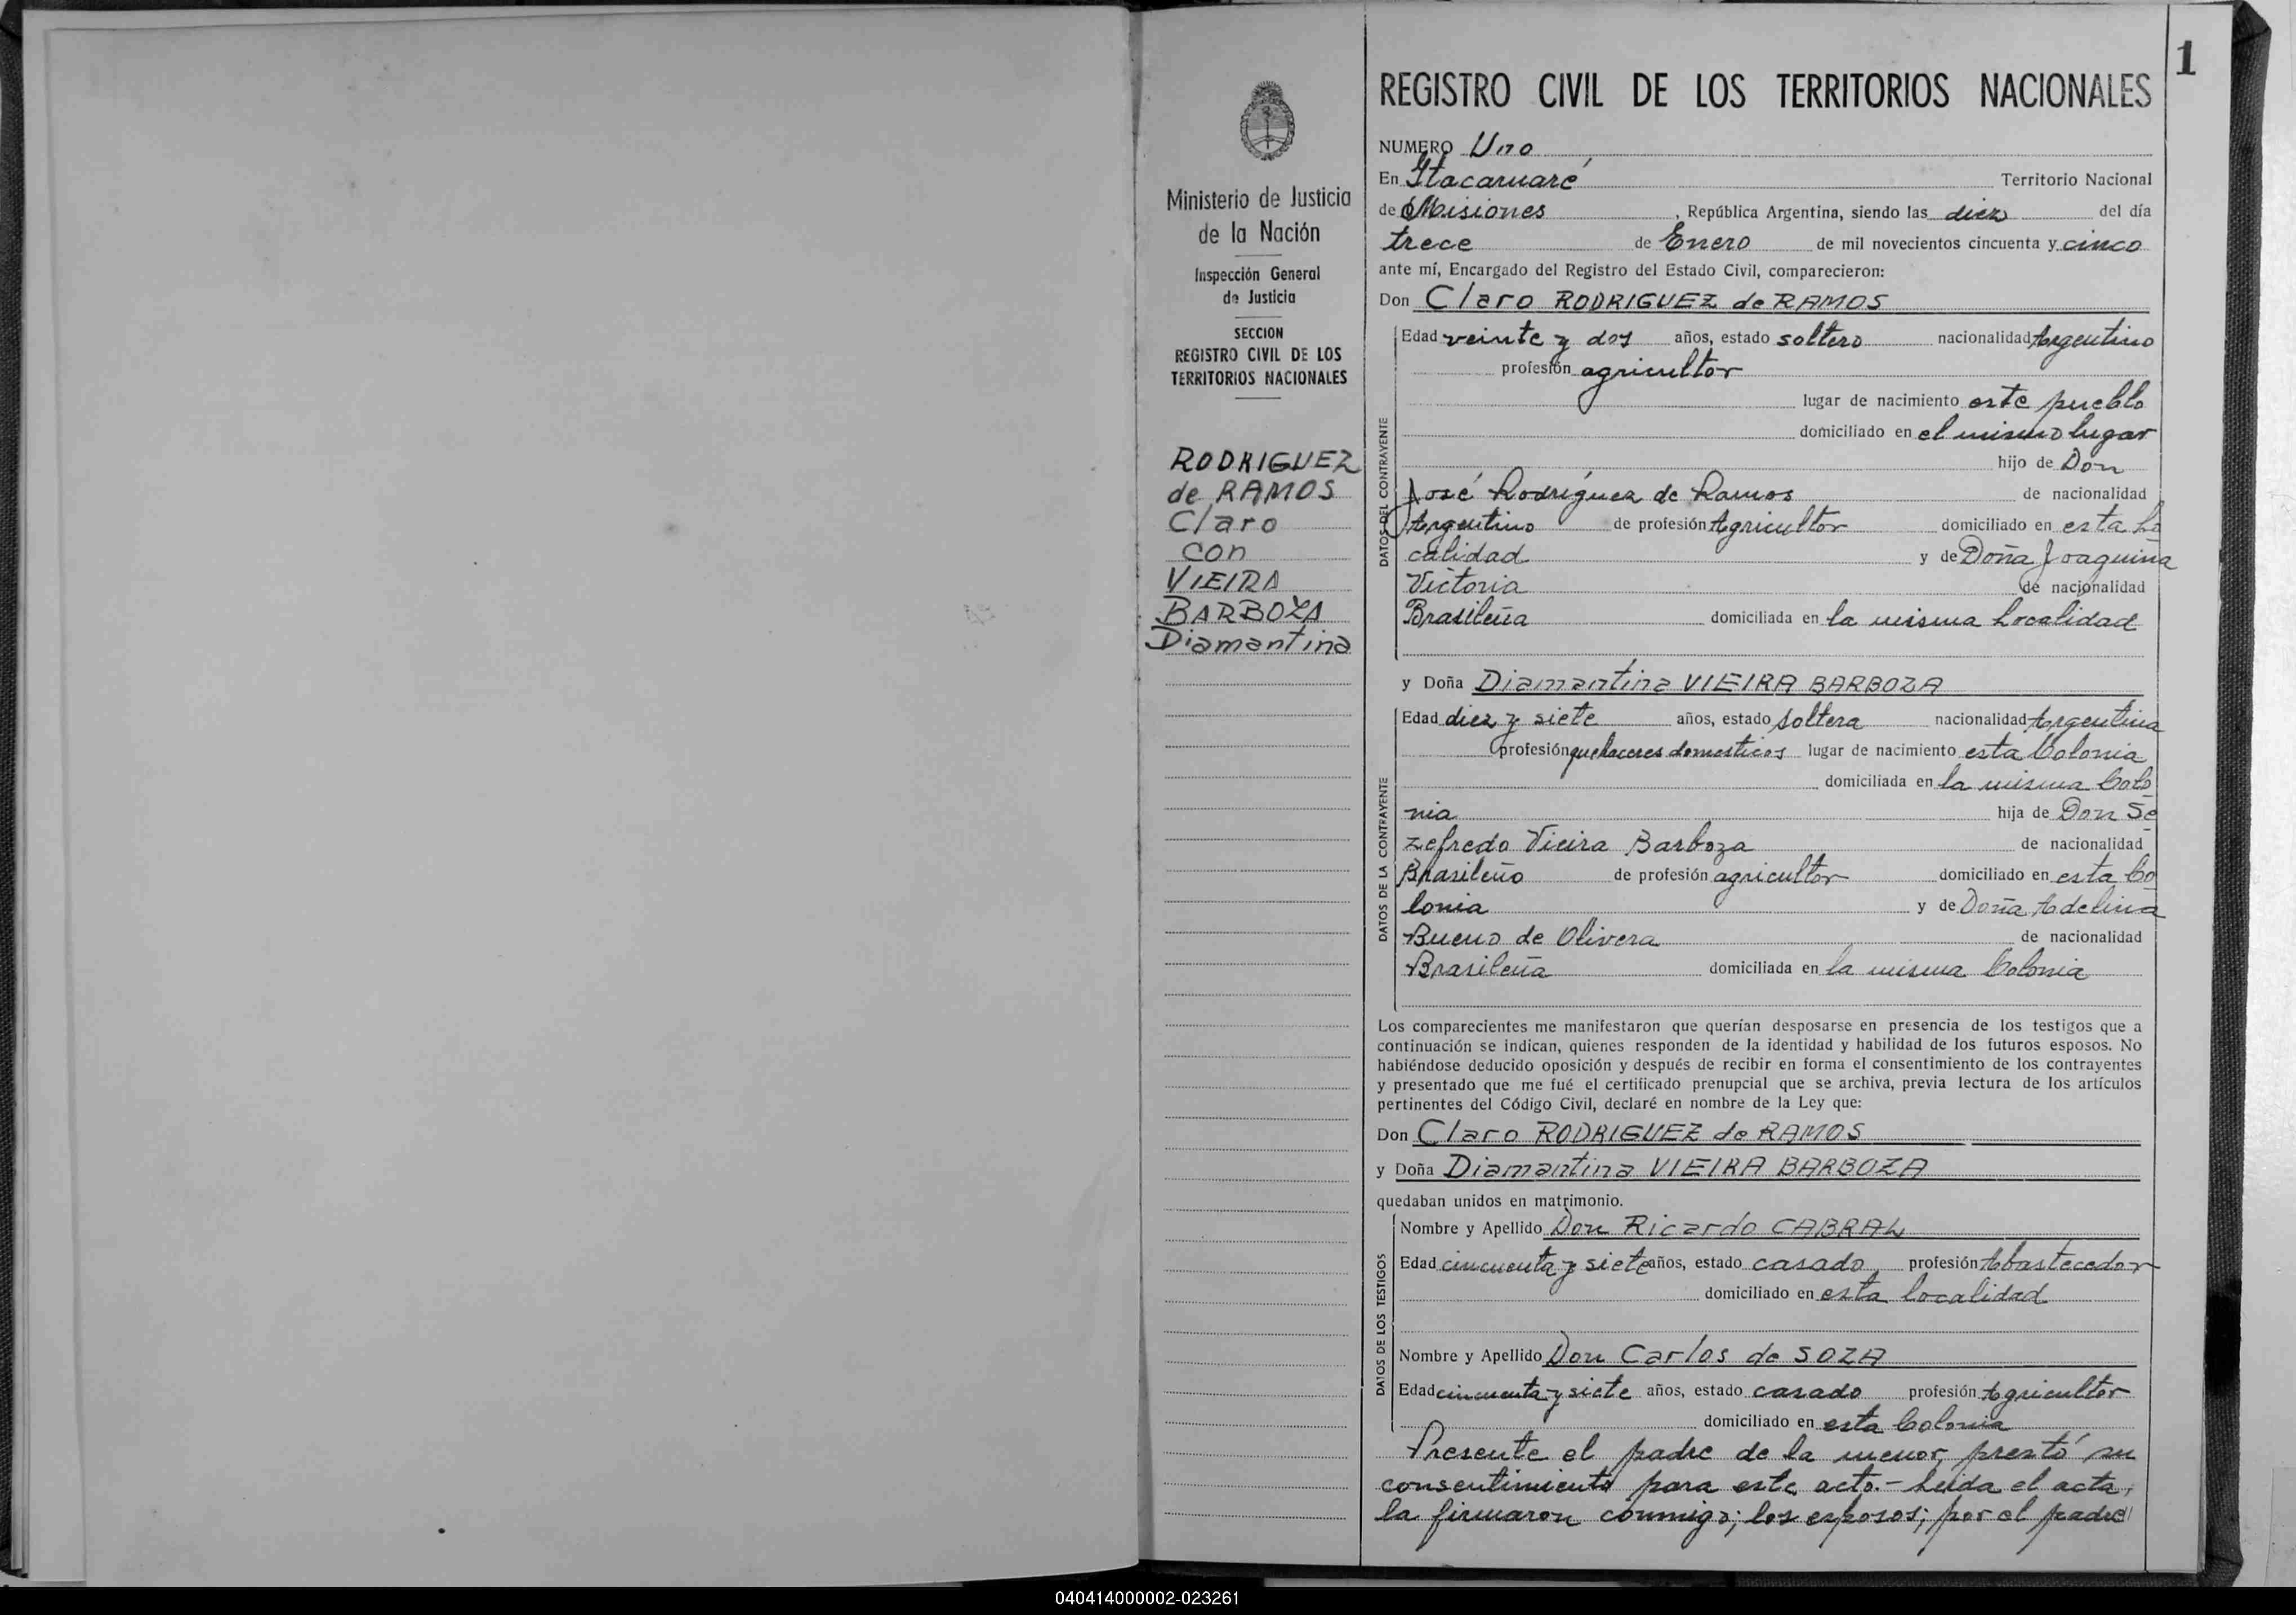 1
Ministerio de Justicia
de la Nación
Inspección General
de Justicia
SECCION
REGISTRO CIVIL DE LOS
TERRITORIOS NACIONALES
RODRIGUEZ
de RAMOS
Claro
con
VIEIRA
BARBOZA
Diamantina
REGISTRO CIVIL DE LOS TERRITORIOS NACIONALES
NUMERO Uno
En Itacaruaré Territorio Nacional
de Misiones, República Argentina, siendo las diez del día
trece de Enero de mil novecientos cincuenta y cinco
ante mí, Encargado del Registro del Estado Civil, comparecieron:
Don Claro RODRIGUEZ de RAMOS
DATOS DEL CONTRAYENTE
Edad veinte y dos años, estado soltero nacionalidad Argentino
profesión agricultor
lugar de nacimiento este pueblo
domiciliado en el mismo lugar
hijo de Don
José Rodríguez de Ramos de nacionalidad
Argentino de profesión Agricultor domiciliado en esta Lo
calidad y de Doña Joaquina
Victoria de nacionalidad
Brasileña domiciliada en la misma Localidad
y Doña Diamantina VIEIRA BARBOZA
DATOS DE LA CONTRAYENTE
Edad diez y siete años, estado soltera nacionalidad Argentina
profesión quehaceres domesticos lugar de nacimiento esta Colonia
domiciliada en la misma Colo
nia hija de Don Se
zefredo Vieira Barboza de nacionalidad
Brasileño de profesión agricultor domiciliado en esta Co
lonia y de Doña Adelina
Bueno de Olivera de nacionalidad
Brasileña domiciliada en la misma Colonia
Los comparecientes me manifestaron que querían desposarse en presencia de los testigos que a
continuación se indican, quienes responden de la identidad y habilidad de los futuros esposos. No
habiéndose deducido oposición y después de recibir en forma el consentimiento de los contrayentes
y presentado que me fué el certificado prenupcial que se archiva, previa lectura de los artículos
pertinentes del Código Civil, declaré en nombre de la Ley que:
Don Claro RODRIGUEZ de RAMOS
y Doña Diamantina VIEIRA BARBOZA
quedaban unidos en matrimonio.
DATOS DE LOS TESTIGOS
Nombre y Apellido Don Ricardo CABRAL
Edad cincuenta y siete años, estado casado, profesión Abastecedor
domiciliado en esta localidad
Nombre y Apellido Don Carlos de SOZA
Edad cincuenta y siete años, estado casado profesión Agricultor
domiciliado en esta Colonia
Presente el padre de la menor, prestó su
consentimiento para este acto.- Leida el acta,
la firmaron conmigo; los esposos; por el padre
040414000002-023261